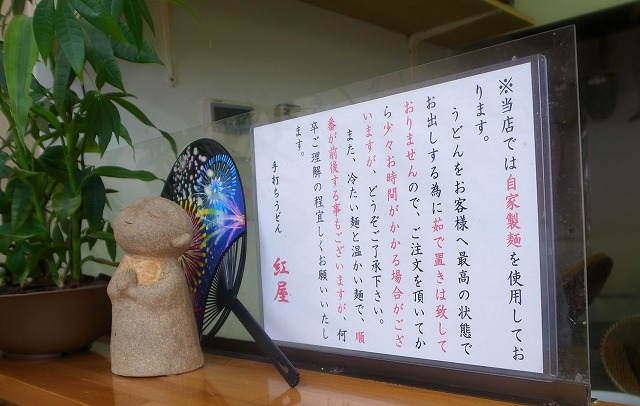 ※当店では自家製麺を使用してお
ります。
うどんをお客様へ最高の状態で
お出しする為に茹で置きは致して
おりませんので、ご注文を頂いてか
ら少々お時間がかかる場合がござ
いますが、どうぞご了承下さい。
また、冷たい麺と温かい麺で、順
番が前後する事もございますが、何
卒ご理解の程宜しくお願いいたし
ます。
手打ちうどん 紅屋